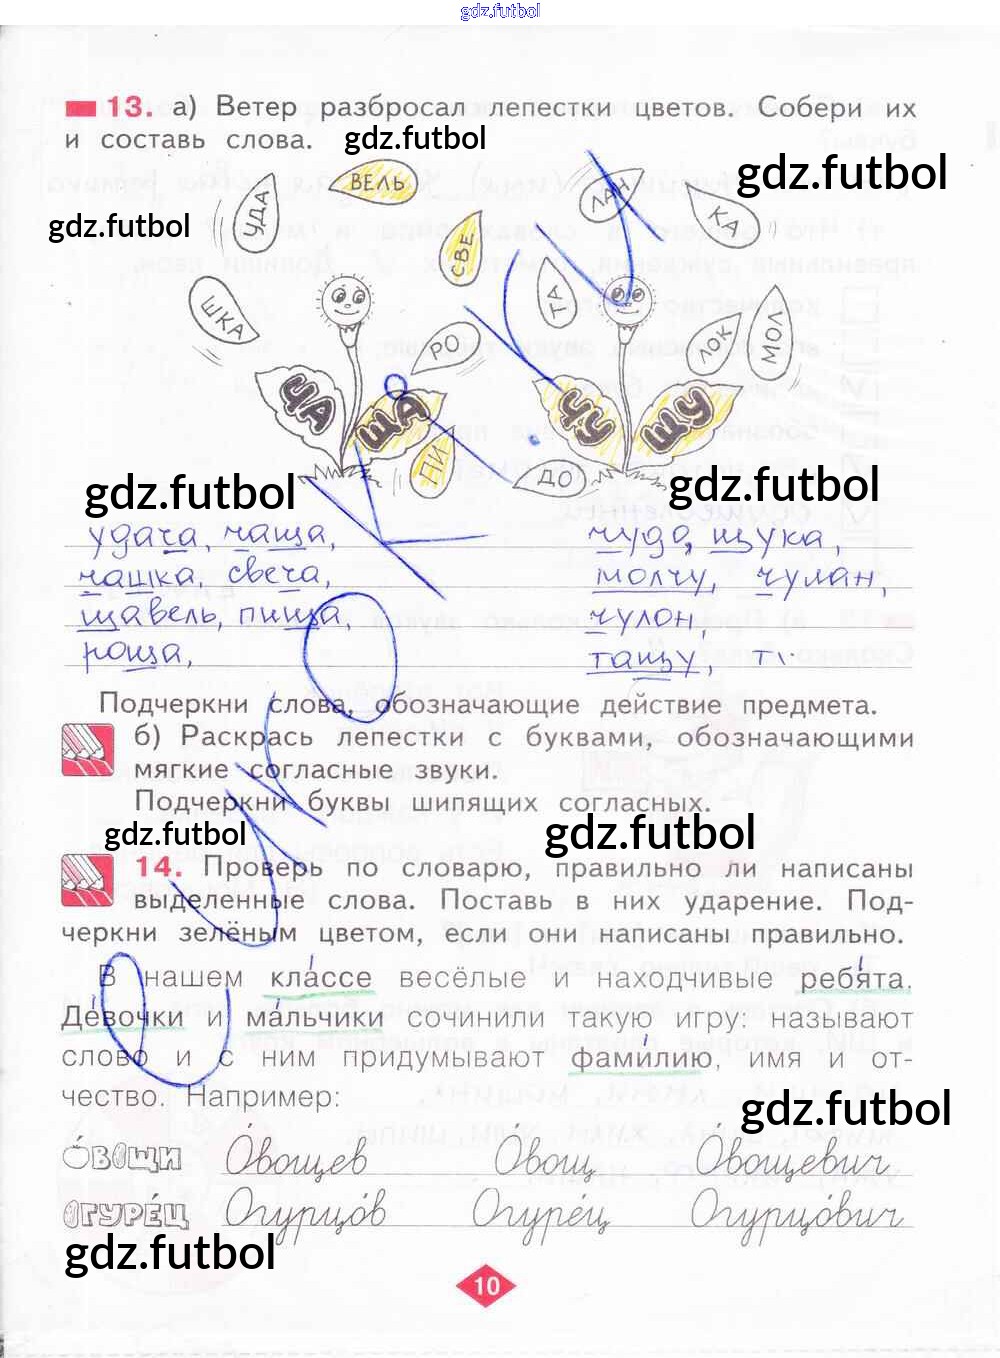 gdz.futbol
13. а) Ветер разбросал лепестки цветов. Собери их
и составь слова. gdz.futbol
gdz.futbol
gdz.futbol
УДА ВЕЛЬ СВЕ ЛАН КА
ШКА РО ТА ЛОК МОЛ
ЧА ЩА ЧУ ЩУ
ПИ ДО
gdz.futbol gdz.futbol
удача, чаща, чудо, щука,
чашка, свеча, молчу, чулан,
щавель, пища, чулок,
роща, тащу,
Подчеркни слова, обозначающие действие предмета.
б) Раскрась лепестки с буквами, обозначающими
мягкие согласные звуки.
Подчеркни буквы шипящих согласных.
gdz.futbol gdz.futbol
14. Проверь по словарю, правильно ли написаны
выделенные слова. Поставь в них ударение. Под-
черкни зелёным цветом, если они написаны правильно.
В нашем кла́ссе весёлые и находчивые ребя́та.
Де́вочки и ма́льчики сочинили такую игру: называют
слово и с ним придумывают фами́лию, имя и от-
чество. Например:
gdz.futbol
О́ВОЩИ О́вощев О́вощ О́вощевич
ОГУРЕ́Ц Огурцо́в Огуре́ц Огурцо́вич
gdz.futbol
10